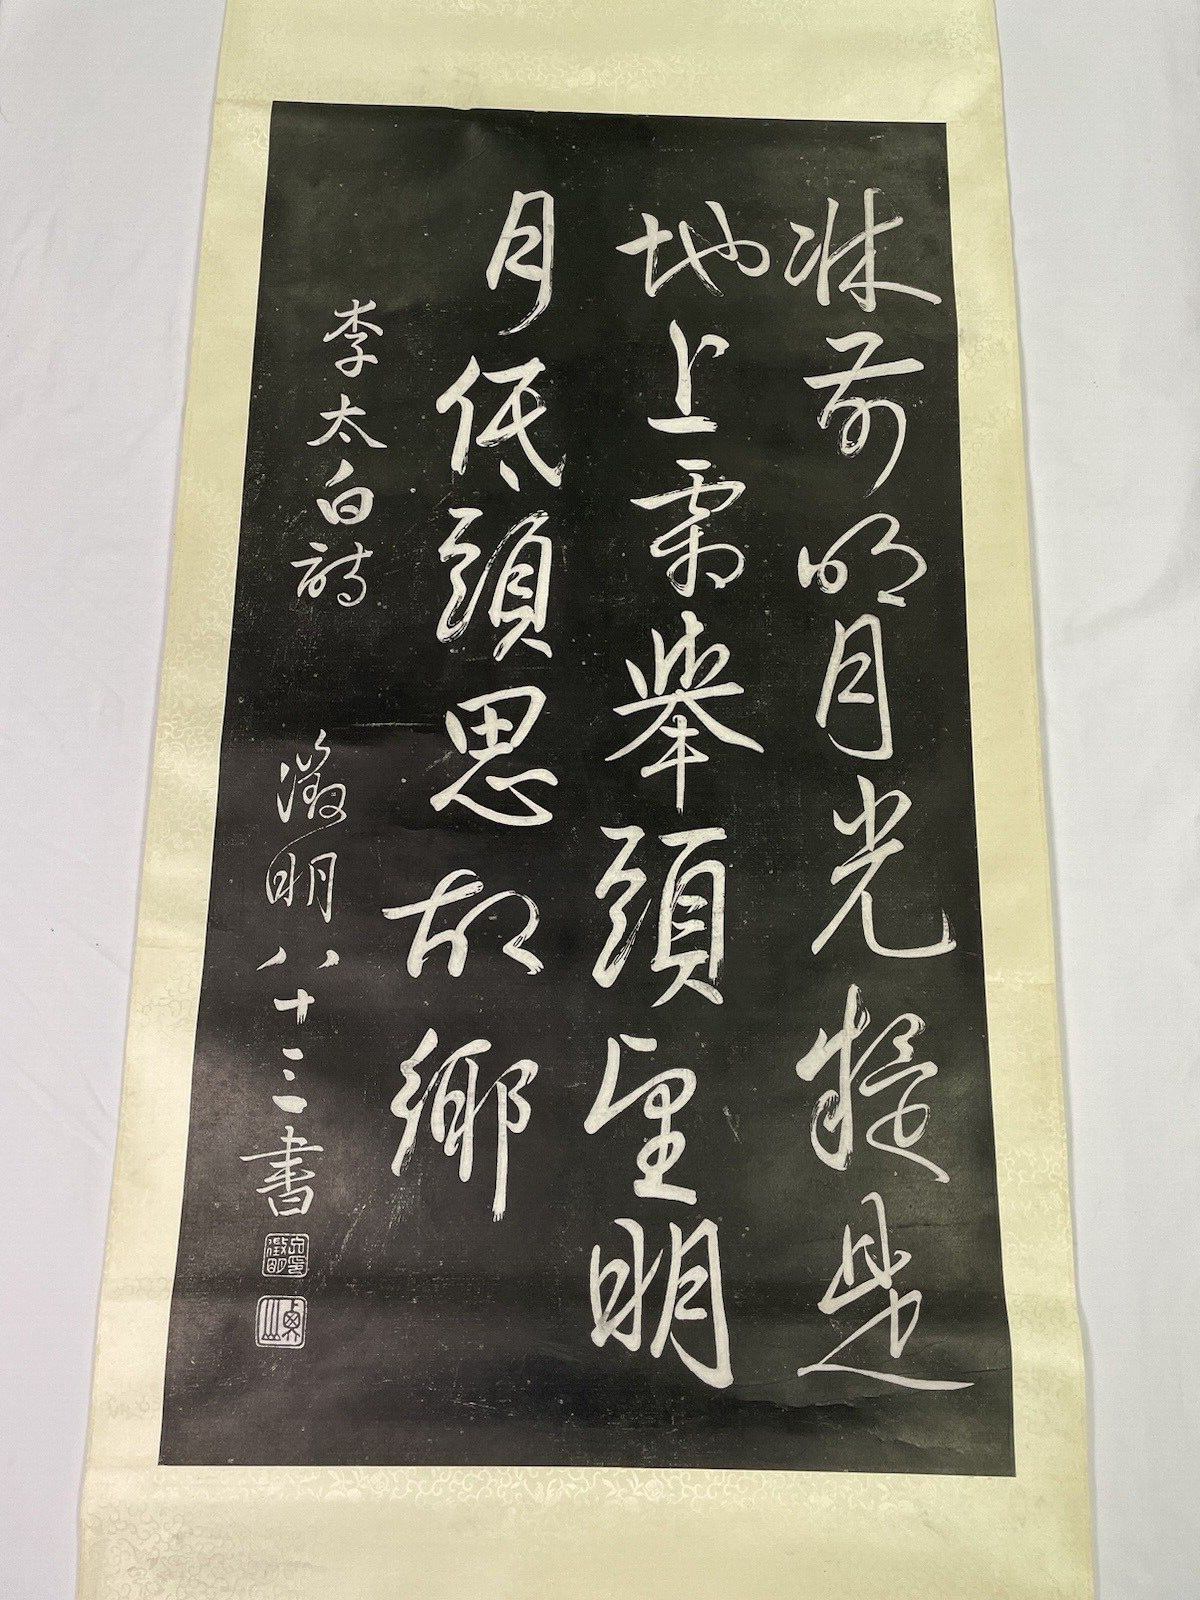 牀前明月光疑是
地上霜舉頭望明
月低頭思故鄉
李太白詩
徵明八十三書